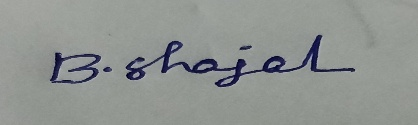 B. shajal